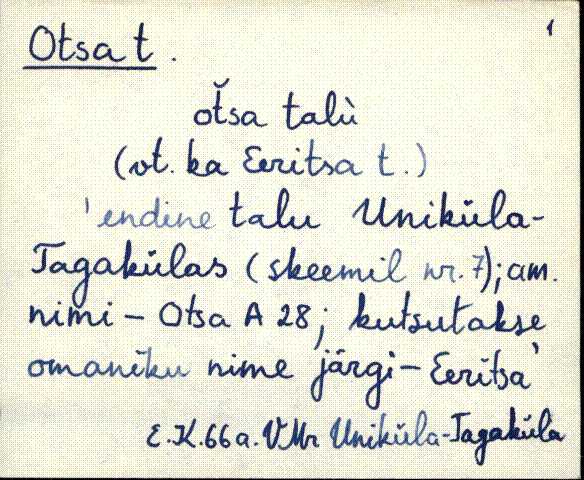 1
Otsa t.
oťsa talù
(vt. ka Eeritsa t.)
'endine talu Uniküla-
Tagakülas (skeemil nr. 7); am.
nimi – Otsa A 28; kutsutakse
omaniku nime järgi – Eeritsa'
E.K. 66 a. VMr Uniküla-Tagaküla